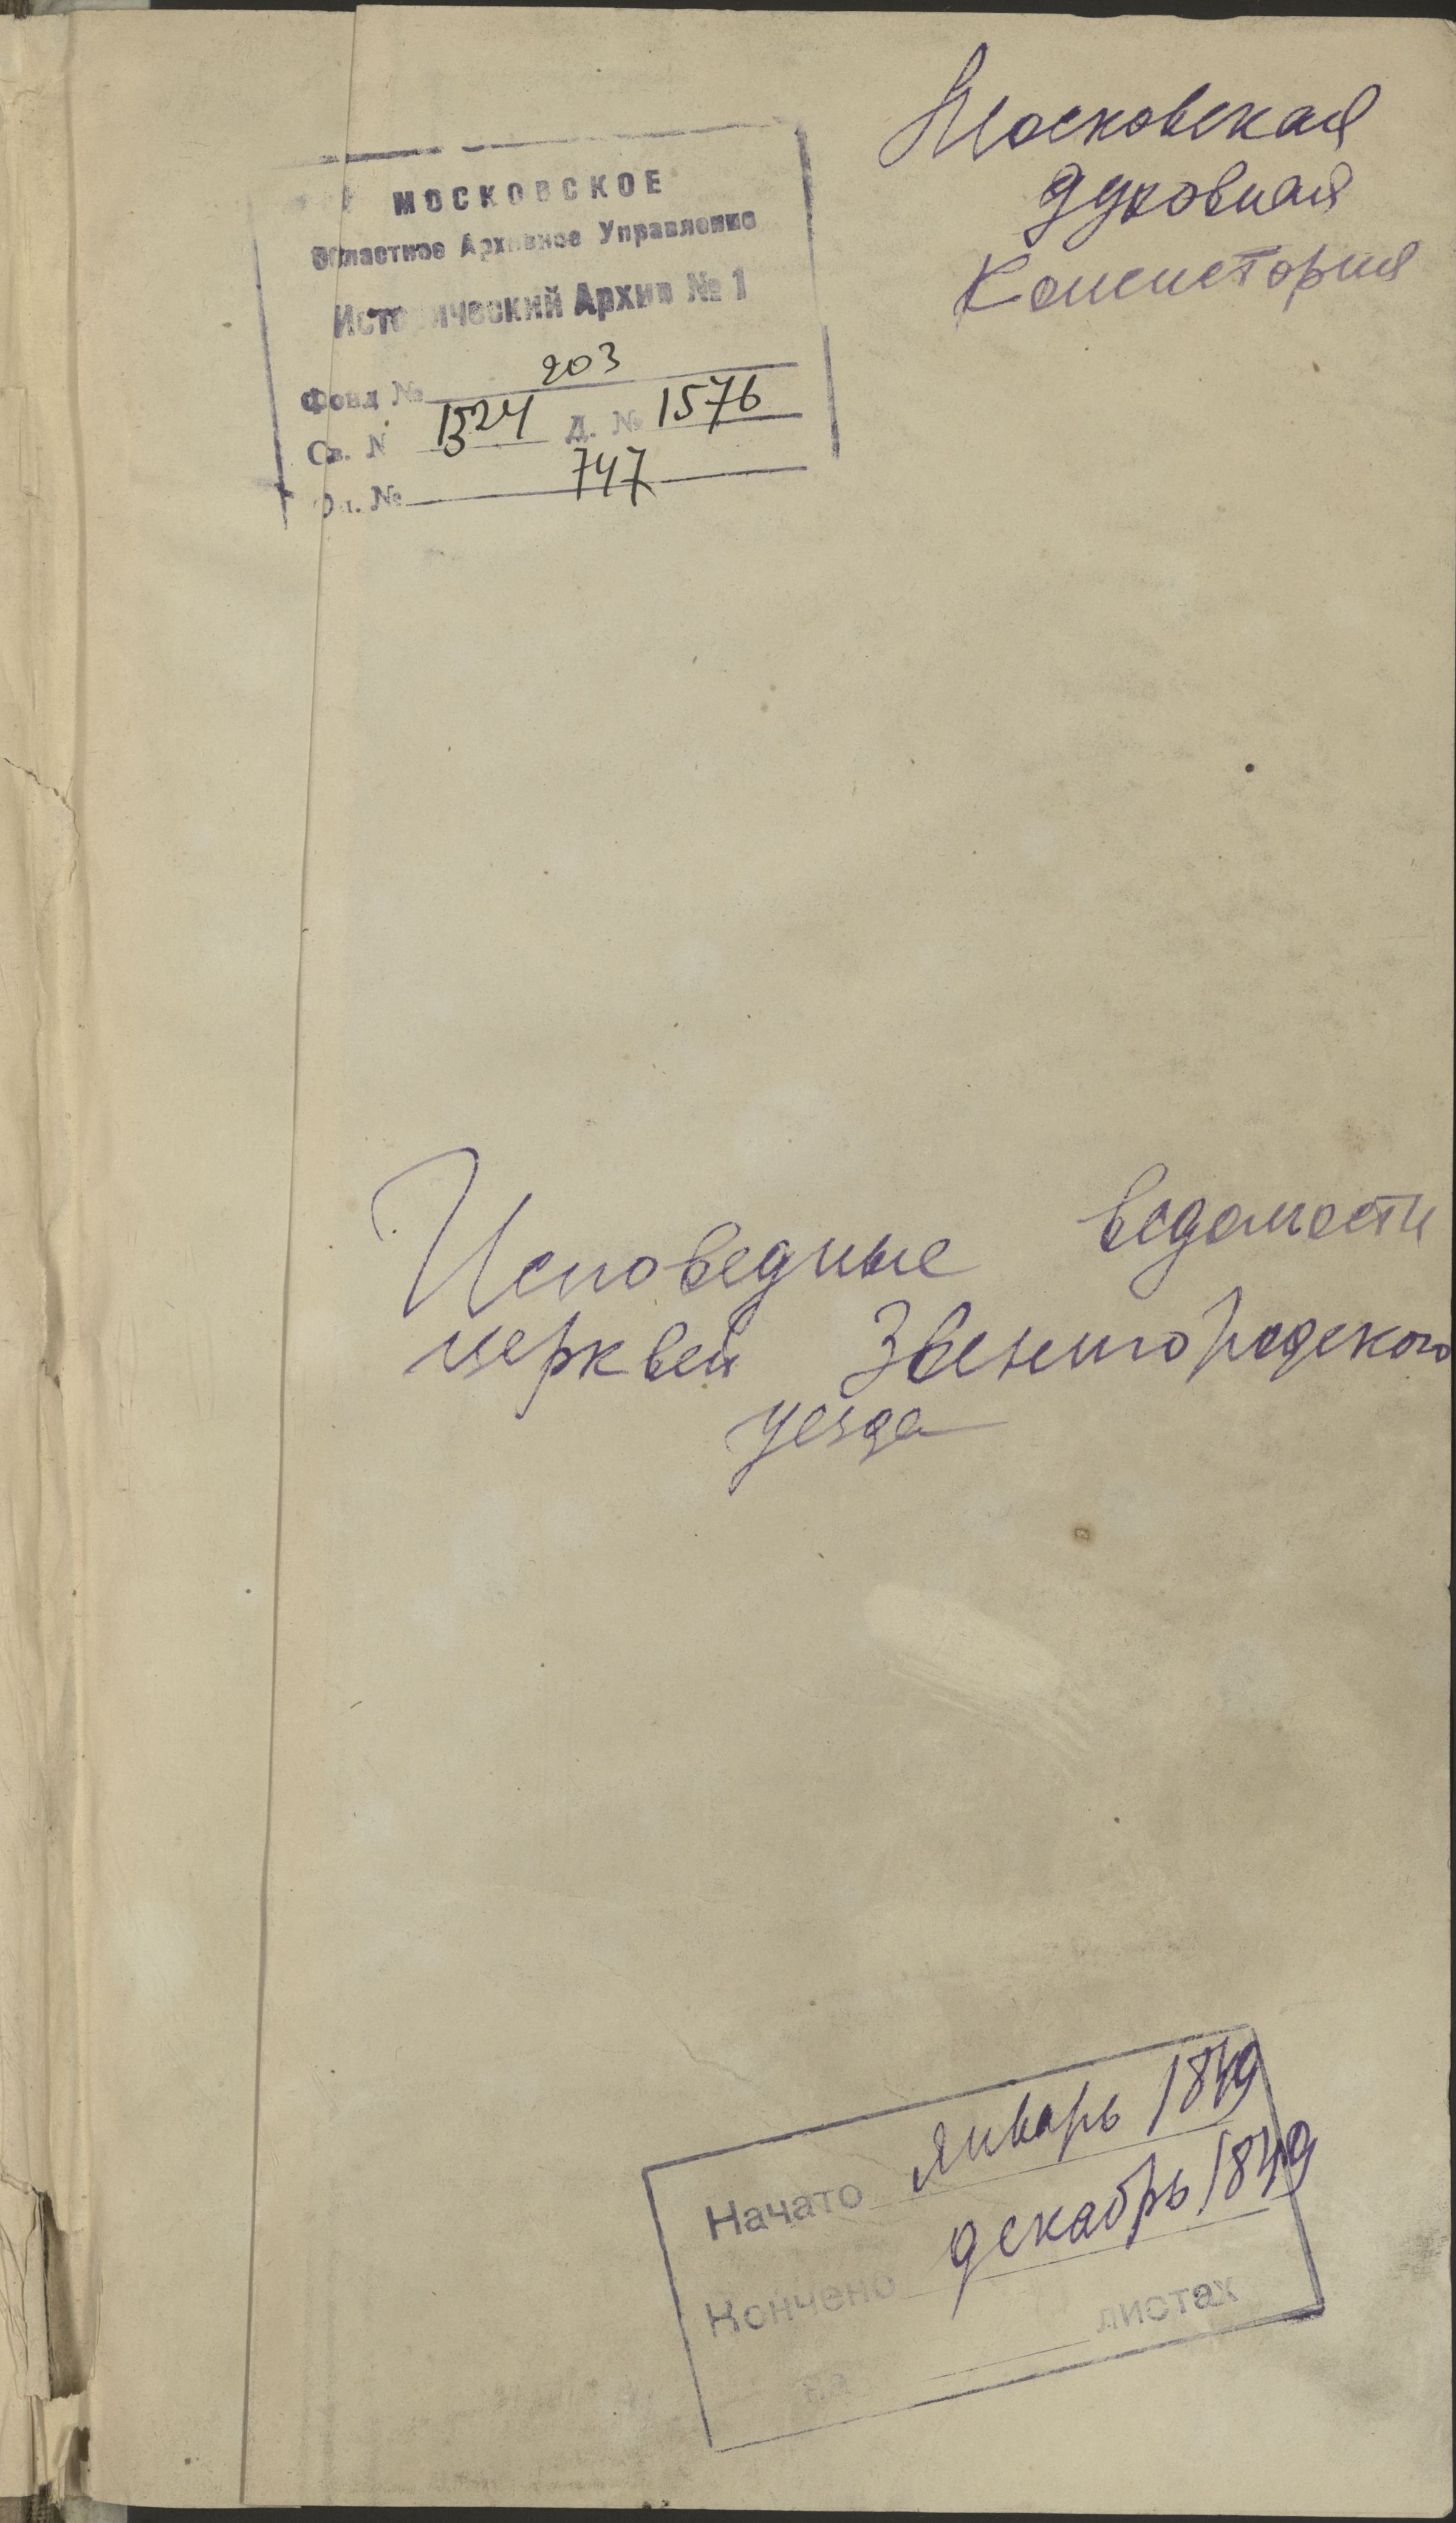 Московская
духовная
Консистория
МОСКОВСКОЕ
Областное Архивное Управление
Исторический Архив № 1
Фонд № 203
Св. № 1324 Д. № 1576
Оп. № 747
Исповедные ведомости
церквей Звенигородского
уезда
Начато январь 1849
Кончено декабрь 1849
на листах